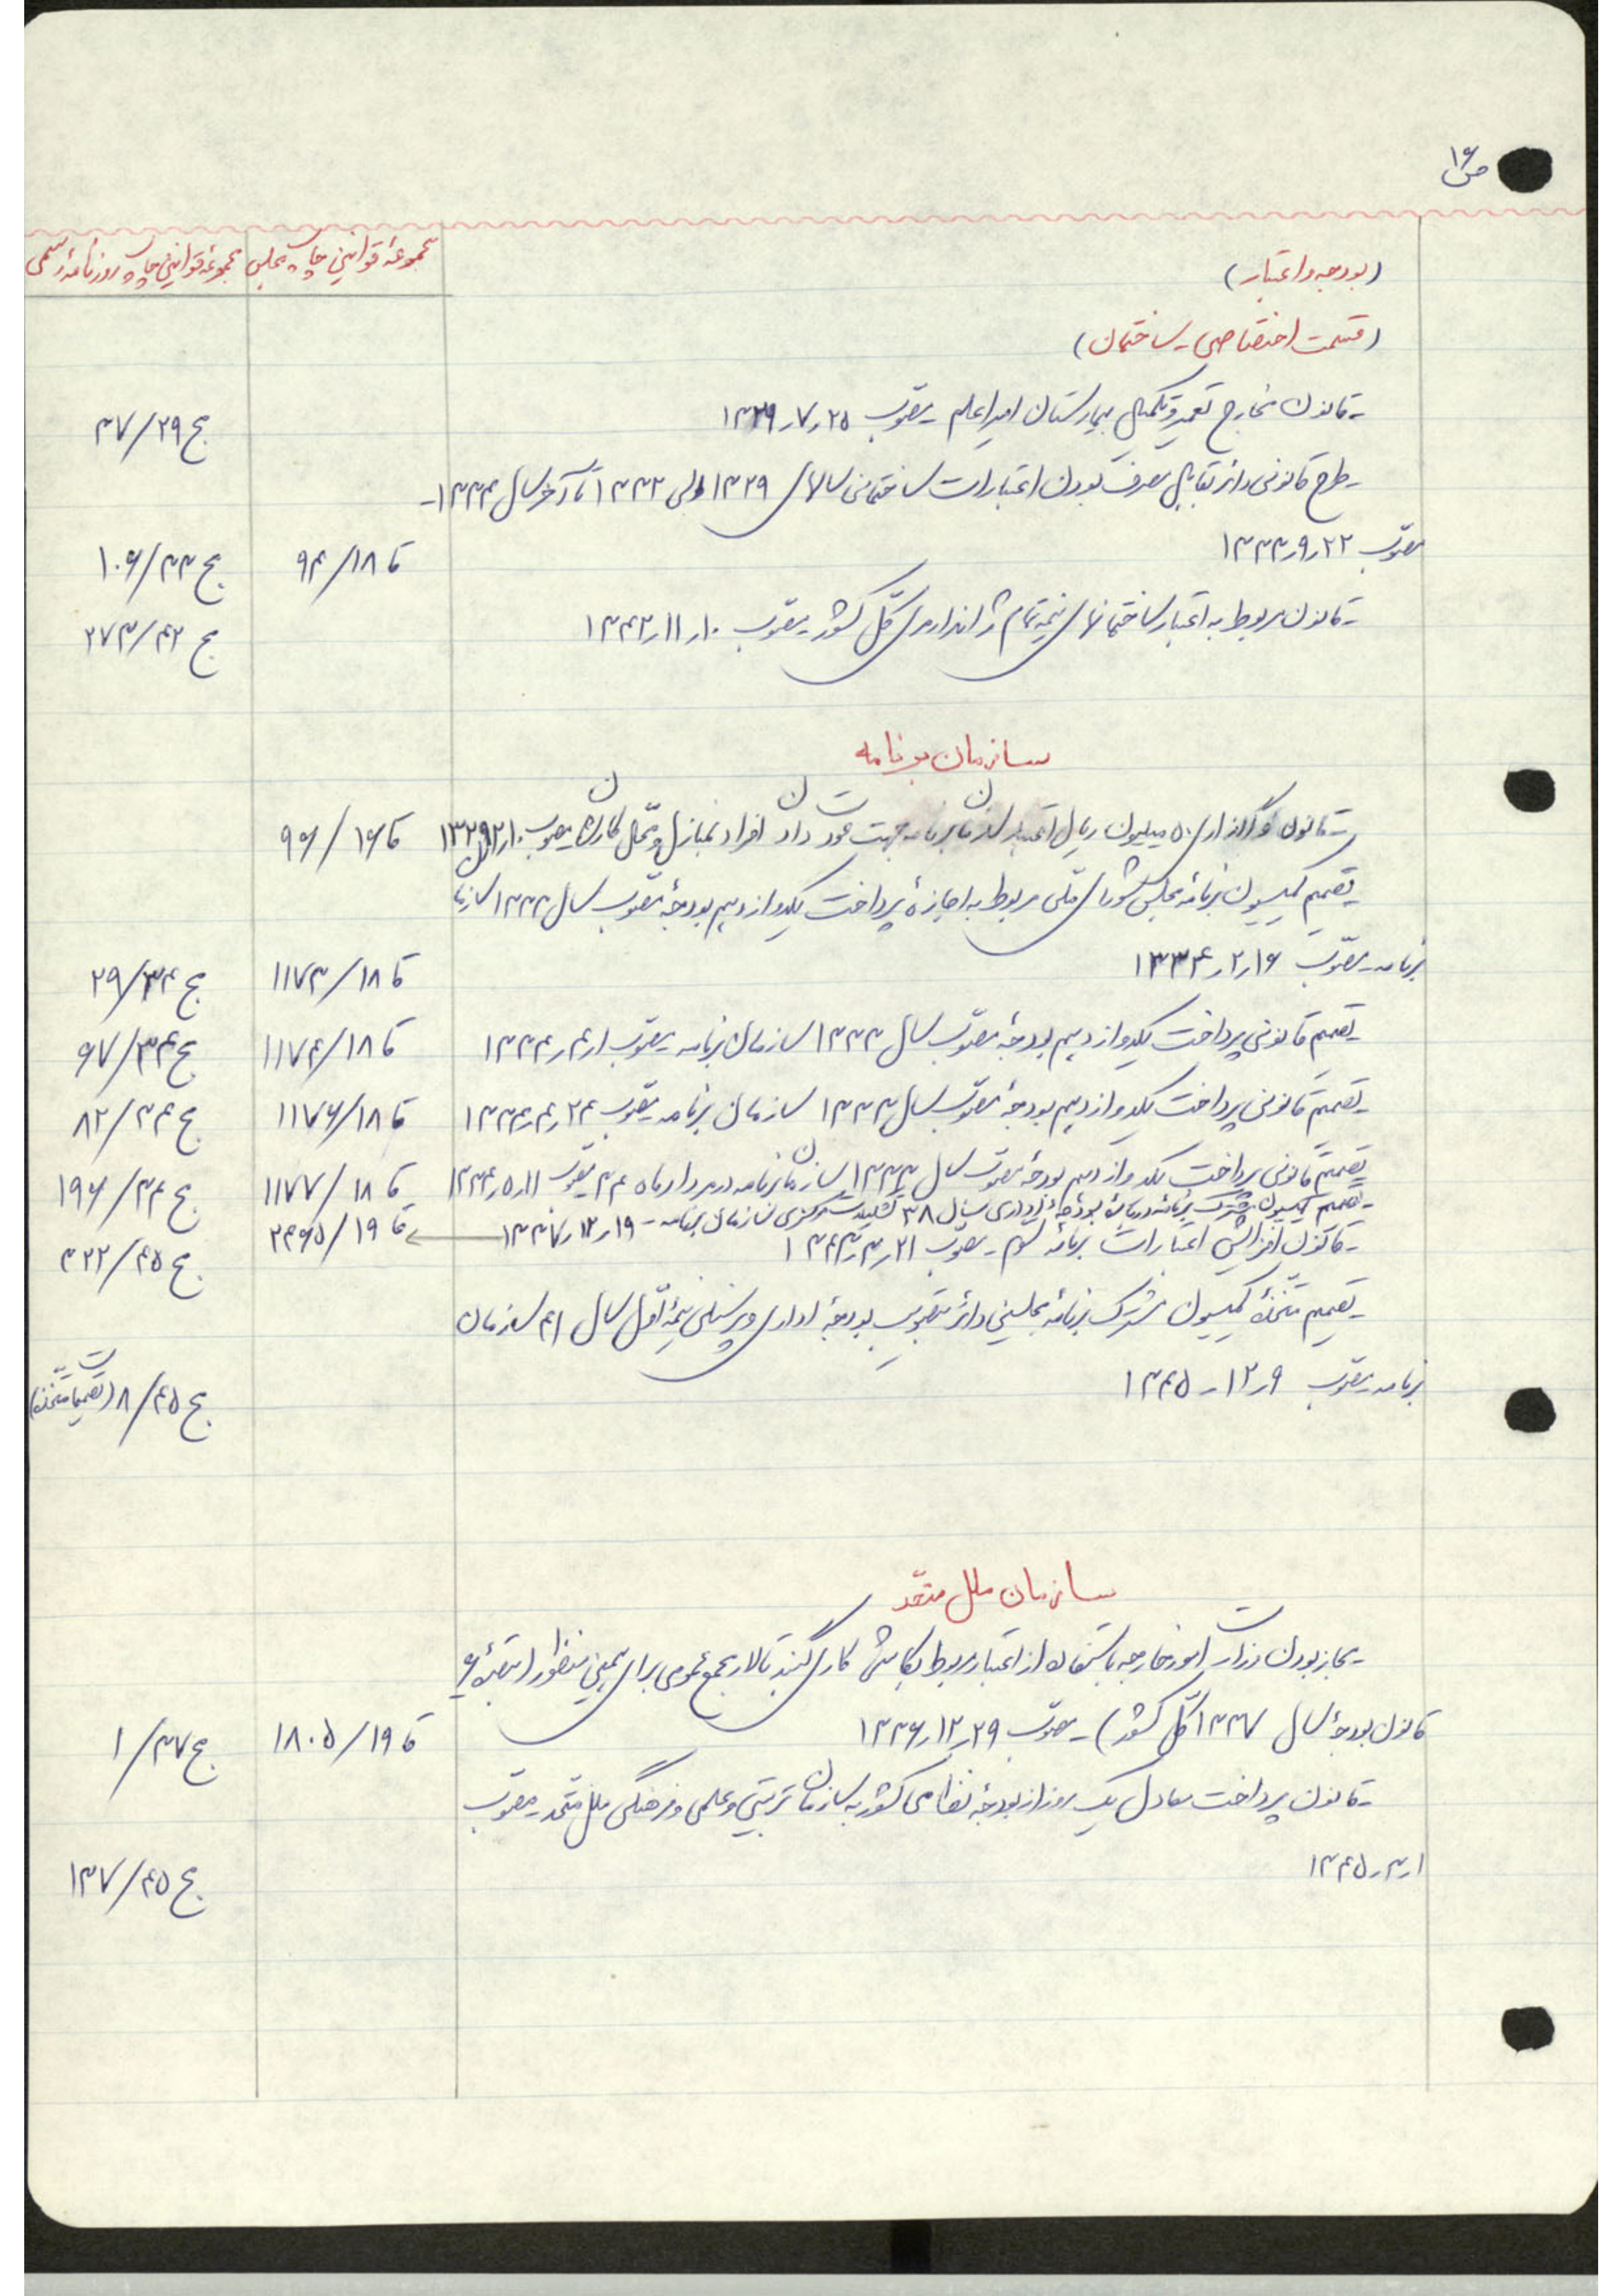 ص ۱۶
مجموعهٔ قوانین چاپ مجلس مجموعهٔ قوانین چاپ روزنامهٔ رسمی
(بودجه و اعتبار)
(قسمت اختصاصی ـ ساختمان)
ـ قانون مخارج تعمیر و تکمیل بیمارستان امیراعلم ـ مصوب ۲۵ر۷ر۱۳۲۹ ج ۳۷/۲۹
ـ طرح قانونی دائر بقابل مصرف بودن اعتبارات ساختمانی سالهای ۱۳۲۹ الی ۱۳۳۲ تا آخر سال ۱۳۳۴ـ
مصوب ۲۲ر۹ر۱۳۳۳ قا ۹۴/۱۸ ج ۱۰۶/۳۳
ـ قانون مربوط به اعتبار ساختمانهای نیمه تمام ژاندارمری کل کشور ـ مصوب ۱۰ر۱۱ر۱۳۴۲ ج ۲۷۳/۴۲
سازمان برنامه
ـ قانون واگذاری ۵۰ میلیون ریال اعتبار سازمان برنامه جهت عودت دادن افراد بمنازل و محل کارشان مصوب ۱۰ر۲ر۱۳۲۹ قا ۹۶/۱۶
ـ تصمیم کمیسیون برنامه مجلس شورای ملی مربوط به اجازهٔ پرداخت یکدوازدهم بودجهٔ مصوب سال ۱۳۳۳ سازمان
برنامه ـ مصوب ۱۶ر۲ر۱۳۳۴ قا ۱۱۷۳/۱۸ ج ۲۹/۳۴
ـ تصمیم قانونی پرداخت یکدوازدهم بودجهٔ مصوب سال ۱۳۳۳ سازمان برنامه ـ مصوب ۱ر۴ر۱۳۳۴ قا ۱۱۷۴/۱۸ ج ۶۷/۳۴
ـ تصمیم قانونی پرداخت یکدوازدهم بودجهٔ مصوب سال ۱۳۳۳ سازمان برنامه ـ مصوب ۲۴ر۴ر۱۳۳۴ قا ۱۱۷۶/۱۸ ج ۸۲/۳۴
ـ تصمیم قانونی پرداخت یکدوازدهم بودجهٔ مصوب سال ۱۳۳۳ سازمان برنامه در مرداد ماه ۳۴ مصوب ۱۱ر۵ر۱۳۳۴ قا ۱۱۷۷/۱۸ ج ۱۹۶/۳۴
ـ تصمیم کمیسیون مشترک برنامه دربارهٔ بودجهٔ اداری سال ۳۸ تشکیلات مرکزی سازمان برنامه ـ ۱۹ر۱۲ر۱۳۳۷ قا ۲۳۶۵/۱۹
ـ قانون افزایش اعتبارات برنامه سوم ـ مصوب ۲۱ر۳ر۱۳۴۳ ج ۳۲۲/۴۵
ـ تصمیم متخذهٔ کمیسیون مشترک برنامهٔ مجلسین دائر بتصویب بودجهٔ اداری و پرسنلی نیمهٔ اول سال ۴۱ سازمان
برنامه ـ مصوب ۹ـ۱۲ـ۱۳۴۵ ج ۸/۴۵ (تصمیمات متخذه)
سازمان ملل متحد
ـ مجاز بودن وزارت امور خارجه باستفاده از اعتبار مربوط بکاشی کاری گنبد تالار مجمع عمومی برای همین منظور (تبصرهٔ ۶
قانون بودجهٔ سال ۱۳۳۷ کل کشور) ـ مصوب ۲۹ر۱۲ر۱۳۳۶ قا ۱۸۰۵/۱۹ ج ۱/۳۷
ـ قانون پرداخت معادل یک روز از بودجهٔ نظامی کشور به سازمان تربیتی و علمی و فرهنگی ملل متحد ـ مصوب
۱ـ۳ـ۱۳۴۵ ج ۱۳۷/۴۵